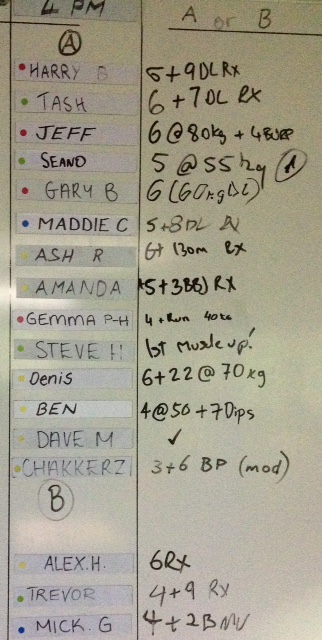 4 PM A or B
A
HARRY B 5+9DL RX
TASH 6+7DL RX
JEFF 6@80kg + 4BURP
SEANO 5 @55kg A
GARY B 6(60kgDL)
MADDIE C 5+8DL
ASH R 6+ 130m RX
AMANDA 5+3BBJ RX
GEMMA P-H 4+Run 40kg
STEVE H 1st Muscle up!
Denis 6+22@70kg
BEN 4@50+7Dips
DAVE M ✓
CHAKKERZ 3+6 BP (mod)
B
ALEX.H. 6RX
TREVOR 4+9 RX
MICK.G 4+2B